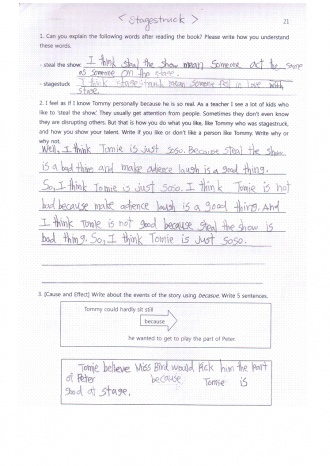 < Stagestruck >
21
1. Can you explain the following words after reading the book? Please write how you understand
these words.
- steal the show: I think steal the show mean someone act the same
as someone on the stage.
- stagestuck: I think stage struck mean someone fell in love with
stage.
2. I feel as if I know Tommy personally because he is so real. As a teacher I see a lot of kids who
like to 'steal the show.' They usually get attention from people. Sometimes they don't even know
they are disrupting others. But that is how you do what you like. Like Tommy who was stagestruck,
and how you show your talent. Write if you like or don't like a person like Tommy. Write why or
why not.
Well, I think Tomie is just soso. Because steal the show
is a bad thing and make adience laugh is a good thing.
So, I think Tomie is just soso. I think Tomie is not
bad because make adience laugh is a good thing. And
I think Tomie is not good because steal the show is
bad thing. So, I think Tomie is just soso.
3. [Cause and Effect] Write about the events of the story using because. Write 5 sentences.
Tommy could hardly sit still
because
he wanted to get to play the part of Peter.
Tomie believe Miss Bird would Pick him the Part
of Peter because Tomie is
good at stage.